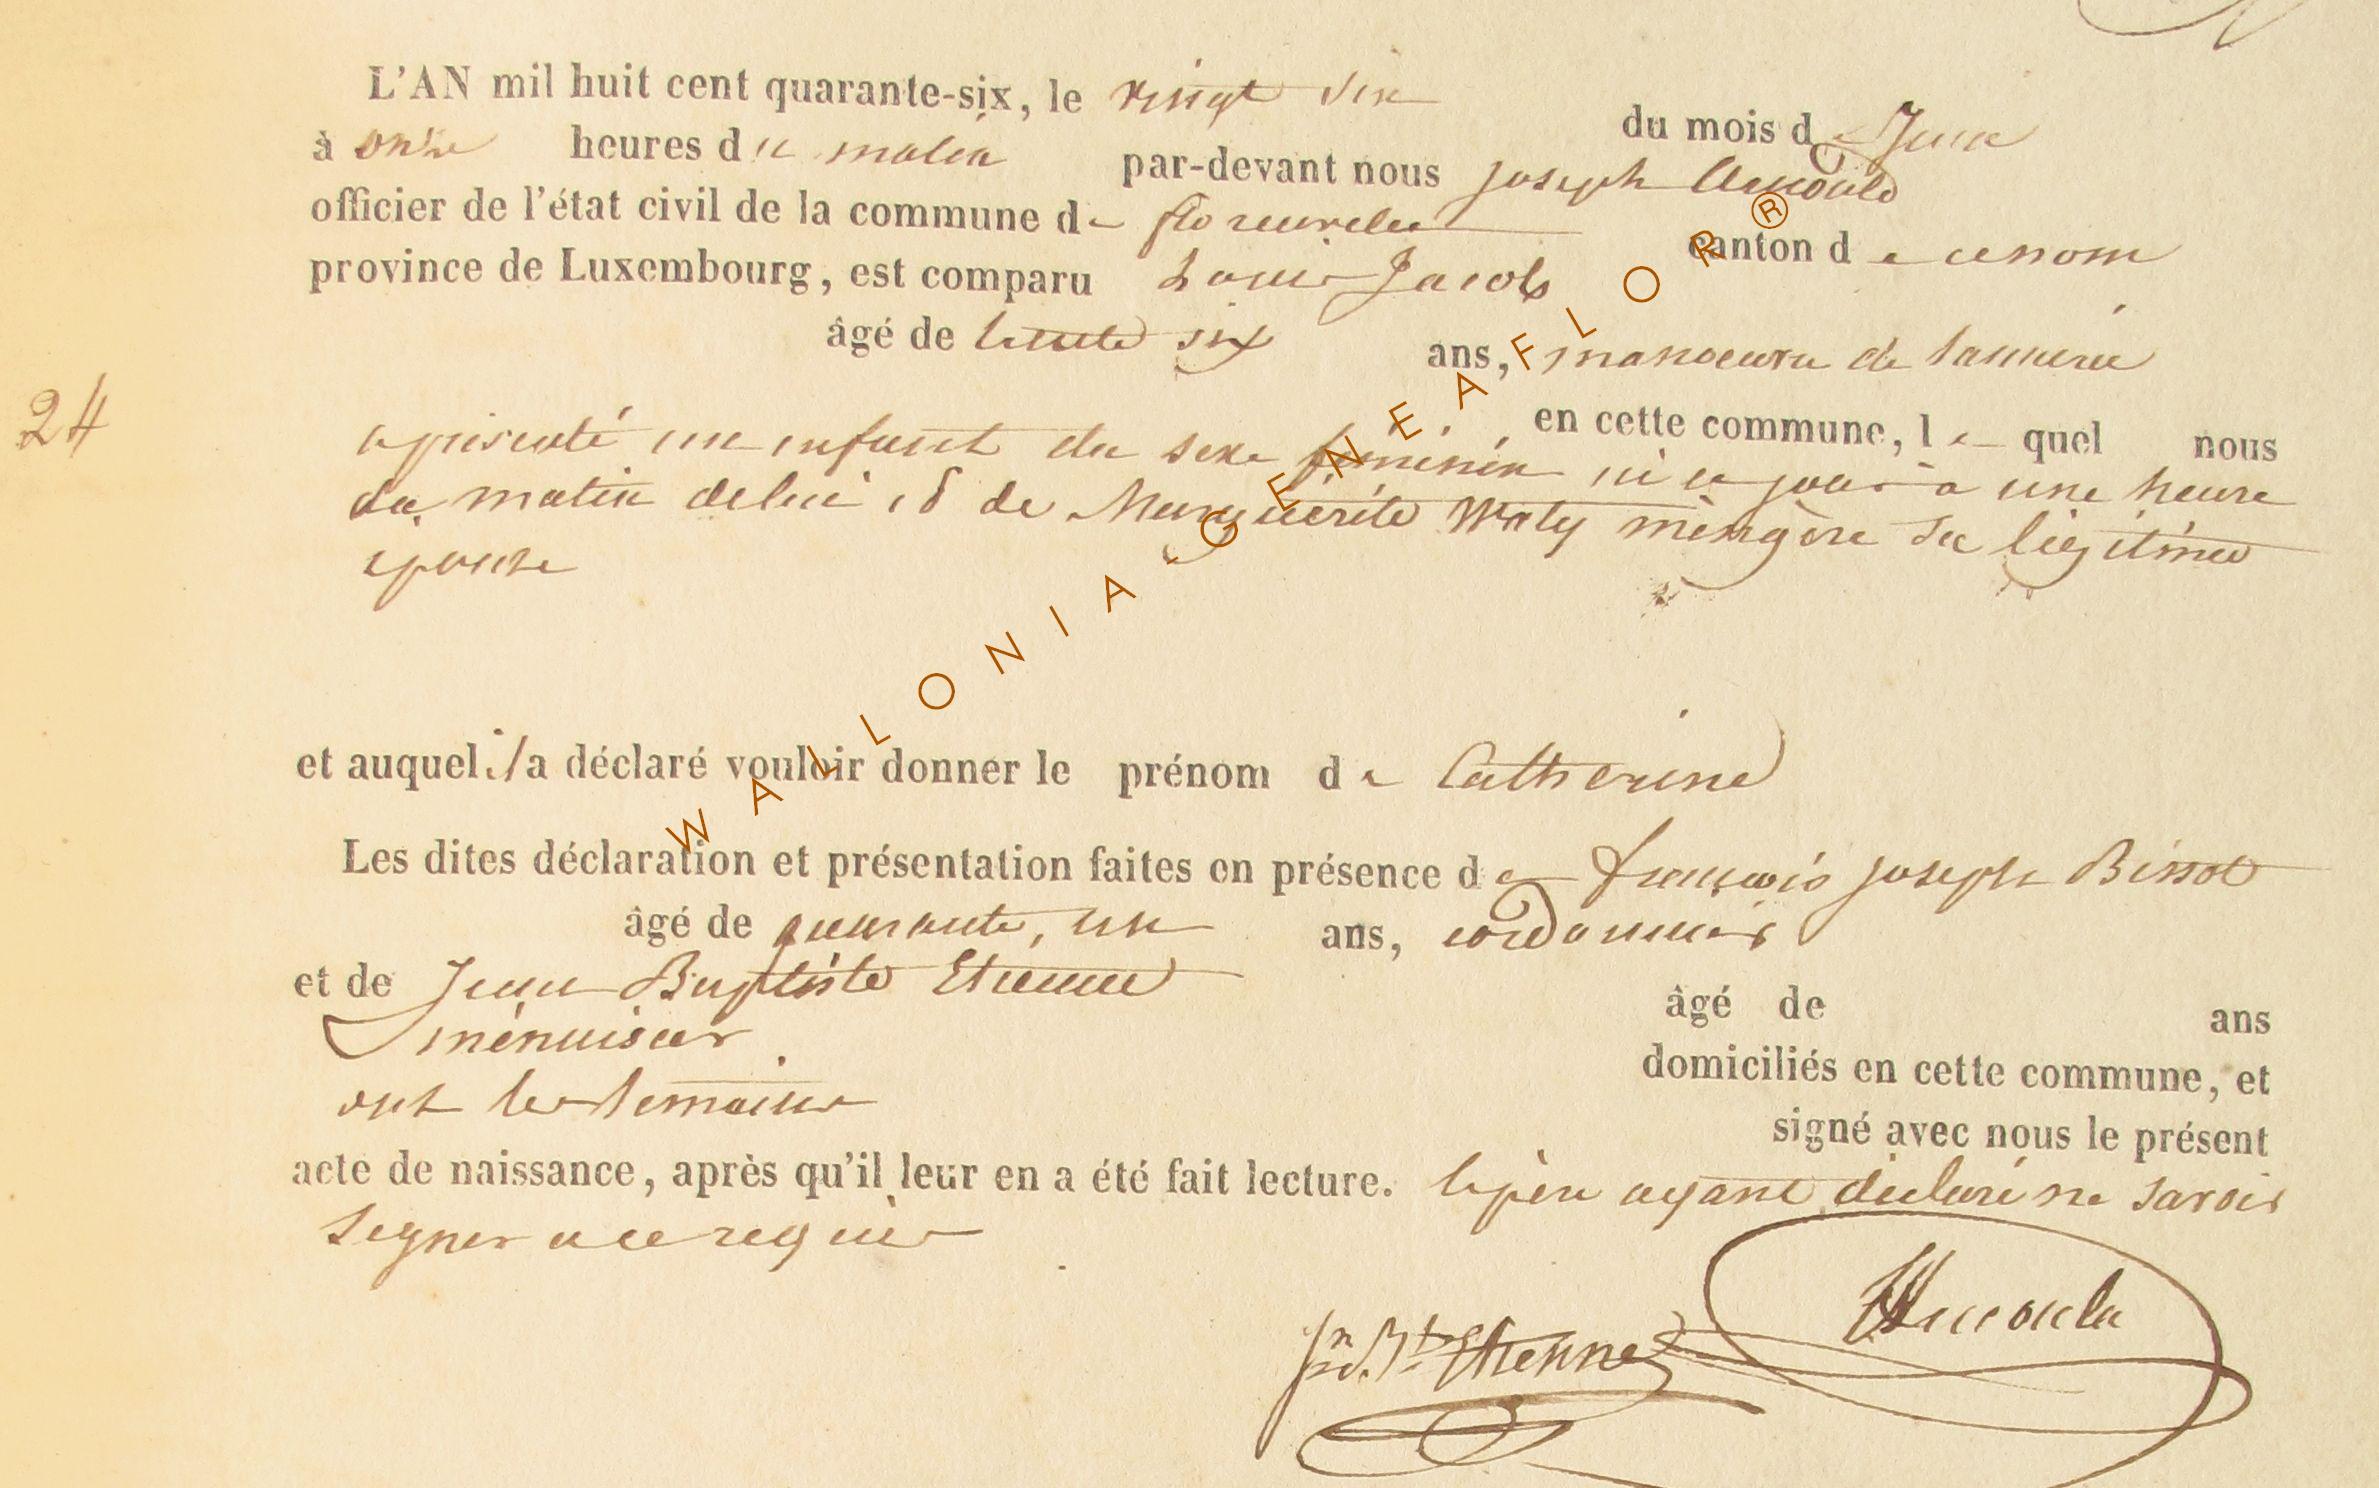 L'AN mil huit cent quarante-six, le vingt six du mois de Juin
à onze heures du matin par-devant nous Joseph Arnould
officier de l'état civil de la commune de florenville canton d e
province de Luxembourg, est comparu Louis Jacob
âgé de trente six ans, manoeuvre de tannerie
24
en cette commune, le quel nous
a présenté un enfant du sexe féminin né ce jour à une heure
du matin de lui et de Marguerite Waty ménagère sa légitime
épouse
et auquel il a déclaré vouloir donner le prénom de Catherine
Les dites déclaration et présentation faites en présence de françois joseph Bissot
âgé de quarante, un ans, cordonnier
et de Jean Baptiste Etienne âgé de ans
ménuisier domiciliés en cette commune, et
ont les temoins signé avec nous le présent
acte de naissance, après qu'il leur en a été fait lecture. le père ayant déclaré ne savoir
signer a ce requis
Jn. Bte Etienne
Arnould
WALLONIA-GENEAFLOR®